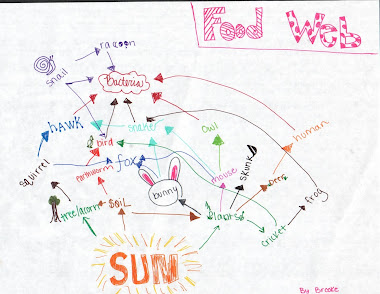 Food Web
raccoon
snail
bacteria
hawk
snake
owl
human
bird
squirrel
earthworm
fox
mouse
skunk
deer
bunny
frog
tree/acorn
soil
plants
cricket
SUN
By Brooke